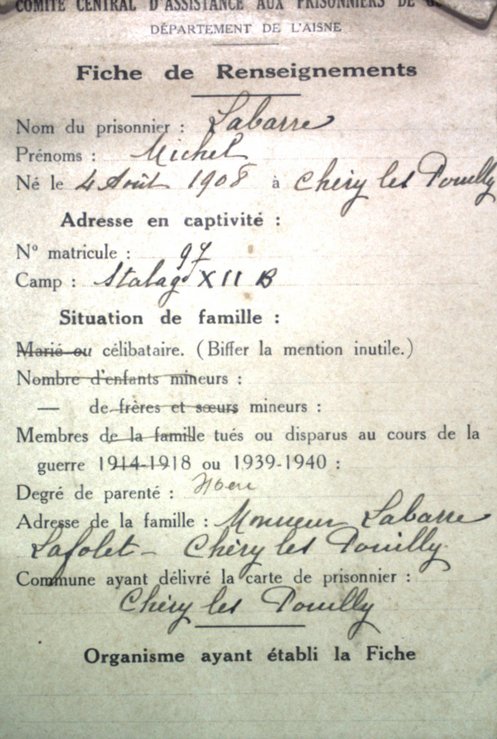 COMITÉ CENTRAL D'ASSISTANCE AUX PRISONNIERS DE
DÉPARTEMENT DE L'AISNE
Fiche de Renseignements
Nom du prisonnier : Labarre
Prénoms : Michel
Né le 4 Août 1908 à Chéry les Pouilly
Adresse en captivité :
N° matricule : 97
Camp : Stalag XII B
Situation de famille :
Marié ou célibataire. (Biffer la mention inutile.)
Nombre d'enfants mineurs :
— de frères et sœurs mineurs :
Membres de la famille tués ou disparus au cours de la
guerre 1914-1918 ou 1939-1940 :
Degré de parenté :
Adresse de la famille : Monsieur Labarre
Lafolet - Chéry les Pouilly
Commune ayant délivré la carte de prisonnier :
Chéry les Pouilly
Organisme ayant établi la Fiche